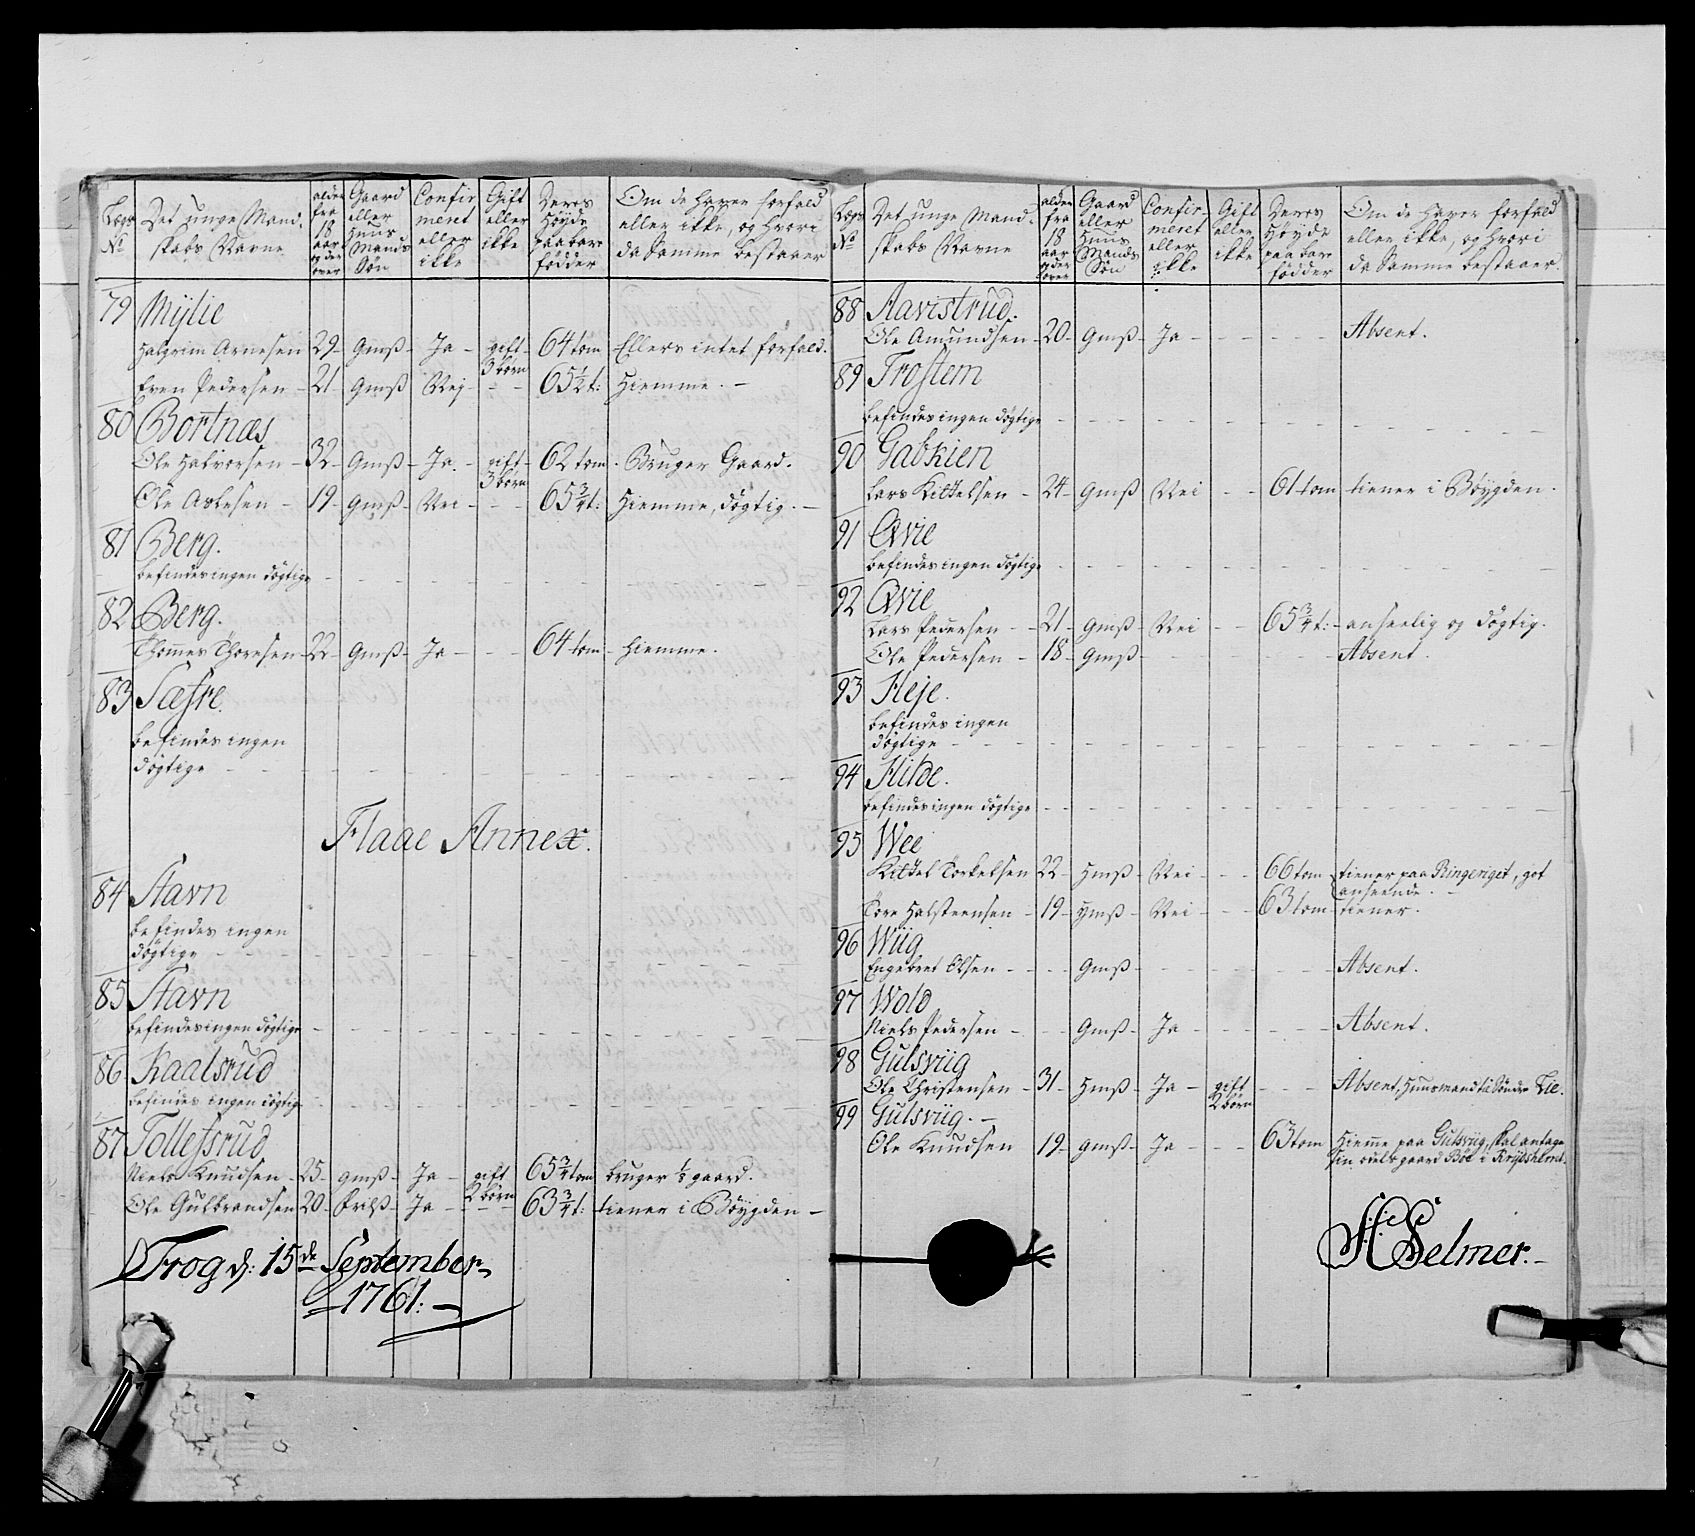 Lægs No | Det unge Mandskabs Navne | alder fra 18 aar og der over | Gaard eller Huus Mands Søn | Confirmeret eller ikke | Gift eller ikke | Deres Høyde paa bare fødder | Om de haver forfald eller ikke, og hvori da samme bestaaer
79 Mÿlie
Halgrim Arnesen 29 - Gmß - Ja - gift 3 børn - 64 tom - Ellers intet forfald.
Even Pedersen - 21 - Gmß - Nej - - 65½ t: Hiemme. -
80 Bortnæs
Ole Halvorsen - 32 - Gmß - Ja - gift 3 børn - 62 tom - Bruger Gaard.
Ole Aslesen - 19 - Gmß - Nei - - - 65¾ t: Hiemme, døgtig. -
81 Berg.
befindes ingen døgtige - - -
82 Berg.
Thomes Thoresen - 22 - Gmß - Ja - - - 64 tom - Hiemme.
83 Sæfre.
befindes ingen
døgtige - - -
Flaae Annex.
84 Stavn
befindes ingen
døgtige - - -
85 Stavn
befindes ingen døgtige - - -
86 Kaalsrud
befindes ingen døgtige - - -
87 Tollefsrud
Niels Knudsen - 25 - gmß - Ja - gift 2 børn 65¾ tom bruger ½ gaard.
Ole Gulbrandsen 20 - Ja - - - 63¾ t: tiener i Bøygden -
Trog d: 15de September
1761. -
Lægs No | Det unge Mandskabs Navne | alder fra 18 aar og der over | Gaard eller Huus Mands Søn | Confirmeret eller ikke | Gift eller ikke | Deres Høyde paa bare fødder | Om de haver forfald eller ikke, og hvori da samme bestaaer.
88 Aavistrud.
Ole Amundsen - 20 - Gmß - Ja - - - Absent.
89 Trostem
befindes ingen døgtige - - -
90 Gabkien
Lars Kittelsen - 24 - Gmß - Nei - - 61 tom - tiener i Bøygden.
91 Qvie
befindes ingen døgtige - - -
92 Qvie
Lars Pedersen - 21 - Gmß - Nei - - 65¾ t: - anseelig og døgtig.
Ole Pedersen - 18 - Gmß - - - Absent.
93 Heje.
befindes ingen
døgtige - - -
94 Hilde.
befindes ingen døgtige - - -
95 Wee
Kittel Torkelsen 22 - Hmß - Nei - - 66 tom tiener paa Ringeriget, got
anseende.
Tore Halsteensen - 19 - Hmß - Nei - - 63 tom - tiener.
96 Wiig
Engebret Olsen - - - Gmß - - - Absent.
97 Wold
Niels Pedersen - - - Gmß - Ja - - - Absent.
98 Gulsviig
Ole Christensen - 31 - Hmß - Ja - gift 2 børn - - Absent, Huusmand til Sønder Lie.
99 Gulsviig. -
Ole Knudsen 19 - gmß - Ja - - - 63 tom Hiemme paa Gulsviig, skal antage
sin odels gaard Böe i
HSelmer. -